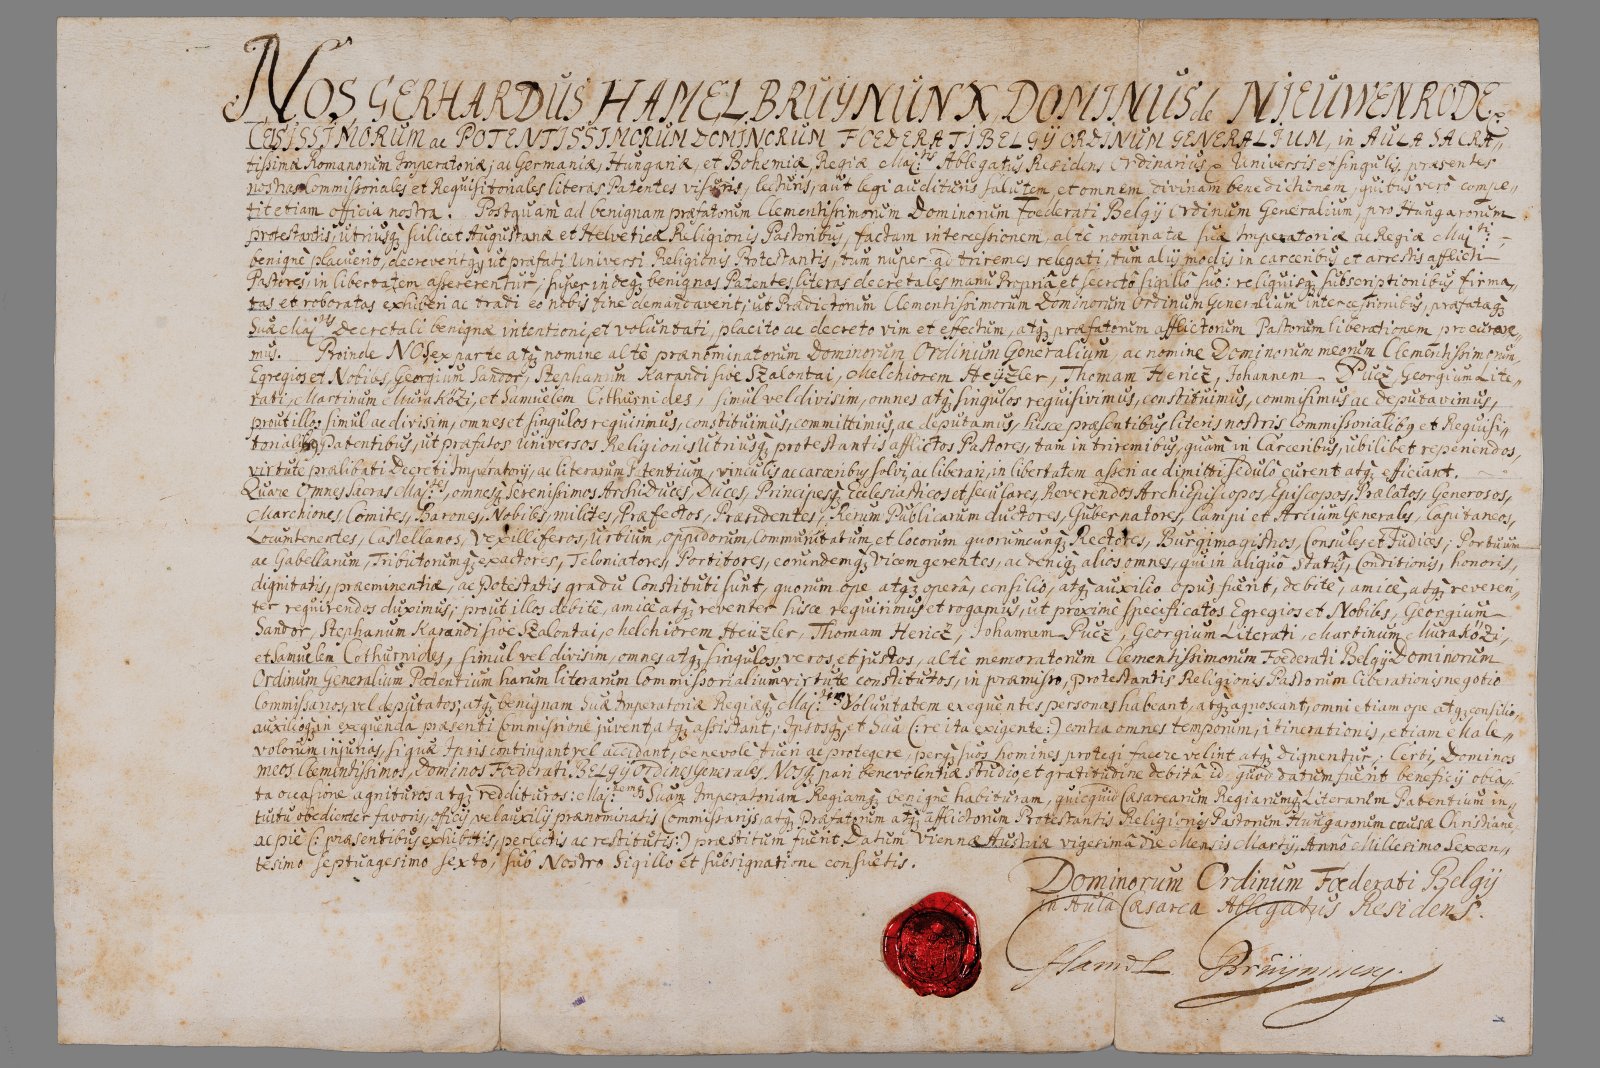 NOS GERHARDUS HAMEL BRUIJNUNX DOMINUS de NIEUWENRODE
CELSISSIMORUM ac POTENTISSIMORUM DOMINORUM FOEDERATI BELGIJ ORDINUM GENERALIUM, in AULA SACRA„
tissimæ Romanorum Imperatoriæ, ac Germaniæ, Hungariæ, et Bohemiæ Regiæ Maj:tis Ablegatus Residens Ordinarius. Universis et singulis, præsentes
nostras Commissoriales et Requisitoriales literas Patentes visuris, lecturis, aut legi audituris salutem, et omnem divinam benedictionem, quibus verò compe„
tit etiam officia nostra: Postquam ad benignam præfatorum Clementissimorum Dominorum Foederati Belgij Ordinum Generalium, pro Hungarorum
protestantis, utriusq3 scilicet Augustanæ et Helveticæ Religionis Pastoribus, factam intercessionem, altè nominatæ suæ Imperatoriæ ac Regiæ Maj:ti
benignè placuerit, decreverit q3, ut præfati Universi Religionis Protestantis, tum nuper ad triremes relegati, tum alijs modis in carceribus et arrestis afflicti
Pastores, in libertatem assererentur, super indeq3 benignas Patentes literas decretales manu Propriâ et secretò sigillô suo: reliquisq3 subscriptionibus firma„
tas et roboratas exhiberi ac tradi eo nobis fine demandaverit; ut Prædictorum Clementissimorum Dominorum Ordinum Generalium intercessionibus, præfatæq3
Suæ Maj:tis Decretali benignæ intentioni, et voluntati, placito ac decreto vim et effectum, atq3 præfatorum afflictorum Pastorum liberationem procurare„
mus. Proinde NOS ex parte atq3 nomine altè prænominatorum Dominorum Ordinum Generalium, ac nomine Dominorum meorum Clementissimorum,
Egregios et Nobiles, Georgium Sandor, Stephanum Karandi sive Szalontai, Melchiorem Heÿzler, Thomam Hericz, Johannem Pucz, Georgium Lite„
rati, Martinum Muraközi, et Samuelem Cothurnides, simul vel divisim, omnes atq3 singulos requisivimus, constituimus, commisimus ac deputavimus,
prout illos simul ac divisim, omnes et singulos requirimus, constituimus, committimus ac deputamus, hisce præsentibus literis nostris Commissorialibq et Requisi„
torialibq Patentibus, ut præfatos Universos Religionis utriusq3 protestantis afflictos Pastores, tam in triremibus, quàm in Carceribus, ubilibet reperiendos,
virtute prælibati Decreti Imperatorij, ac literarum Patentium, vinculis ac carceribus solvi, ac liberari, in libertatem asseri ac dimitti sedulò curent atq3 efficiant.
Quare Omnes Sacras Maj:tes, omnesq3 serenissimos ArchiDuces, Duces, Principesq3 Ecclesiasticos et seculares, Reverendos ArchiEpiscopos, Episcopos, Prælatos, Generosos,
Marchiones, Comites, Barones, Nobiles, milites, Præfectos, Præsidentes, Rerum Publicarum ductores, Gubernatores, Campi et Arcium Generales, Capitaneos,
Locumtenentes, Castellanos, Vexilliferos, Urbium, oppidorum, Communitatum, et locorum quorumcunq3 Rectores, Burgimagistros, Consules et Judices; Portuum
ac Gabellarum, Tributorumq3 exactores, Teloniatores, Portitores, eorundemq3 Vicem gerentes, ac deniq3 alios omnes, qui in aliquo statûs, Conditionis, honoris,
dignitatis, præeminentiæ, ac Potestatis gradu Constituti sunt, quorum ope, atq3 operâ, consilio, atq3 auxilio opus fuerit, debitè, amicè, atq3 reveren„
ter requirendos duximus; prout illos debitè, amicè atq3 reventer hisce requirimus et rogamus, ut proximè specificatos Egregios et Nobiles, Georgium
Sandor, Stephanum Karandi sive Szalontai, Melchiorem Heüzler, Thomam Hericz, Johannem Pucz, Georgium Literati, Martinum Muraközi,
et Samuelem Cothurnides, simul vel divisim, omnes atq3 singulos, veros et justos, altè memoratorum Clementissimorum Fœderati Belgij Dominorum
Ordinum Generalium Patentium harum literarum Commissorialium virtute constitutos, in præmisso, Protestantis Religionis Pastorum liberationis negotio
Commissarios, vel deputatos, atq3 benignam Suæ Imperatoriæ Regiæq3 Maj:tis Voluntatem exequentes personas habeant, atq3 agnoscant, omni etiam ope atq3 consilio,
auxilioq3, in exequenda præsenti Commissione juvent atq3 assistant, Ipsosq3, et Sua (: re ita exigente :) contra omnes temporum, itinerationis, etiam Male„
volorum injurias, si quæ Ipsis contingant vel accidant, benevolè tueri ac protegere, perq3 suos homines protegi facere velint atq3 dignentur; Certi, Dominos
meos Clementissimos, Dominos Fœderati BELGIJ ORDINES Generales, NOSq3 pari benevolentiæ studio, et gratitudine debitâ id, quod datum fuerit beneficij obla„
ta occasione agnituros atq3 reddituros: Maj:temq3 Suam Imperatoriam Regiamq3 benignè habituram, quicquid Cæsarearum Regiarumq3 Literarum Patentium in„
tuitu obedienter favoris, officij, vel auxilij prænominatis Commissarijs, atq3 Præfatorum atq3 afflictorum Protestantis Religionis Pastorum Hungarorum causæ Christianè,
ac piè (: præsentibus exhibitis, perlectis ac restitutis :) præstitum fuerit. Datum Viennæ Austriæ vigesimâ die Mensis Martij, Annô Millesimo Sexcen„
tesimo Septuagesimo sexto, sub Nostro Sigillo et subsignatione consuetis.
Dominorum Ordinum Fœderati Belgij
in Aulâ Cæsarea Ablegatus Residens.
Hamel Bruijnincx.